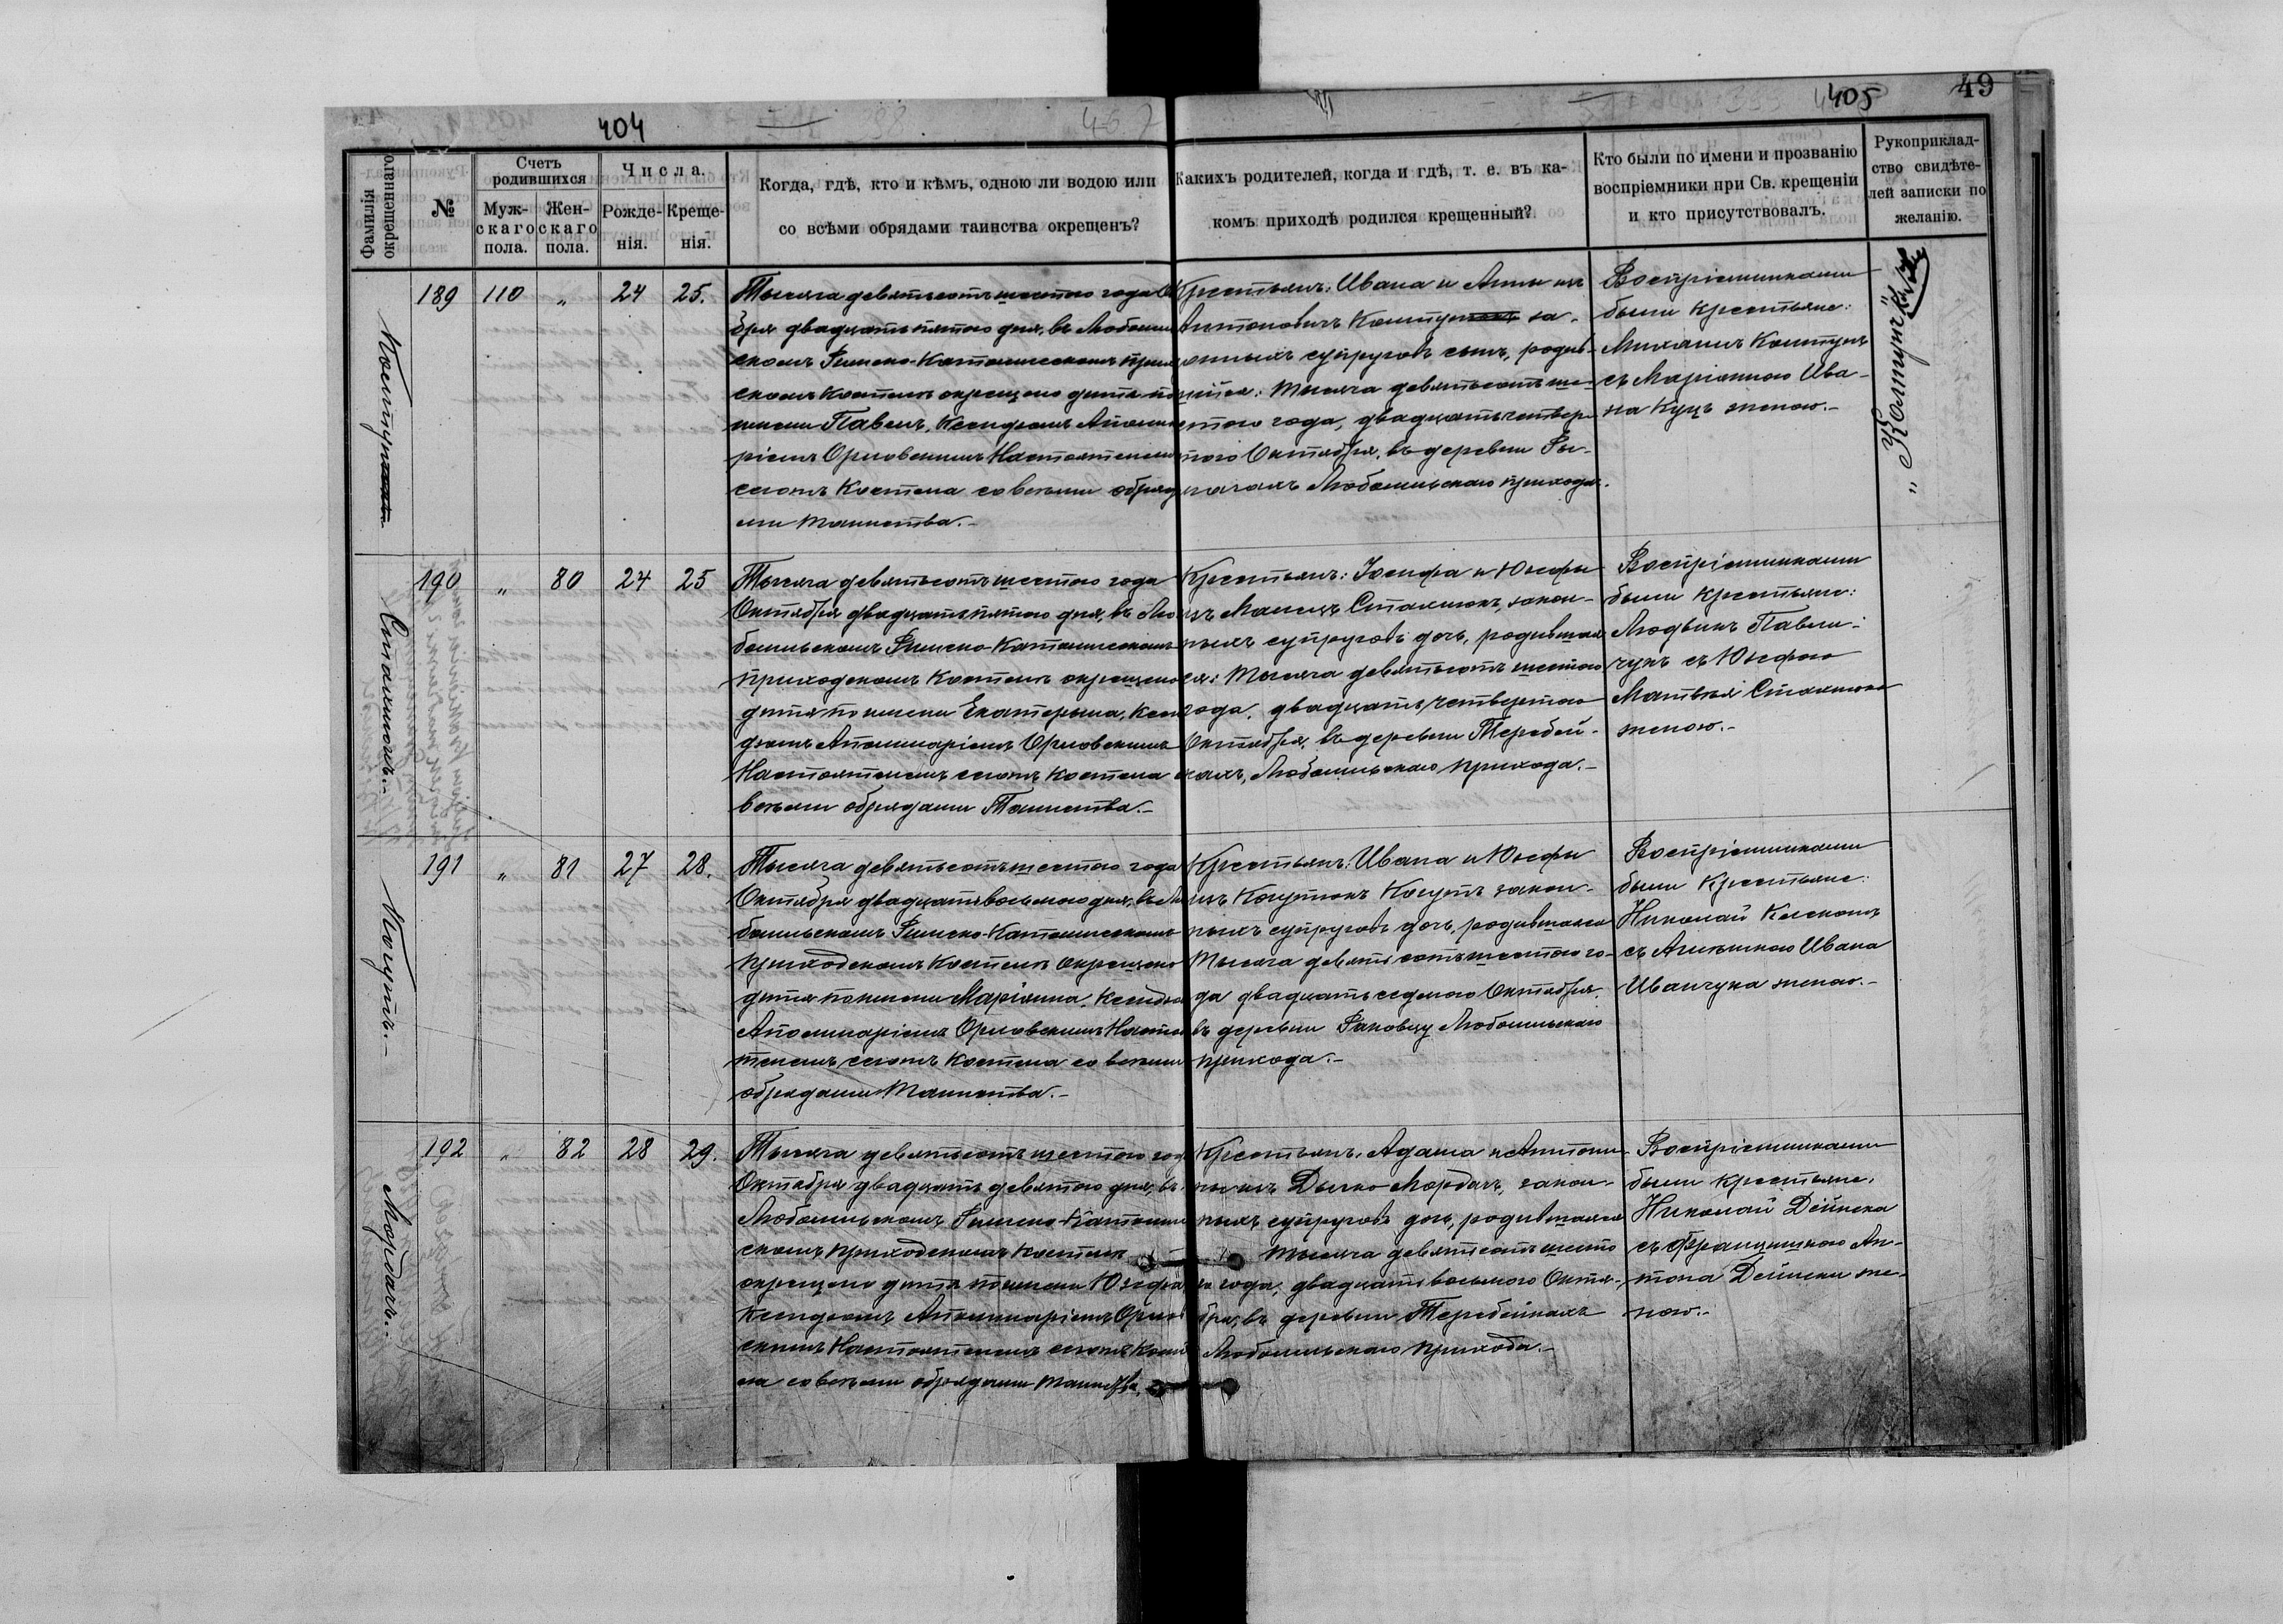 404
405
49
Фамилія окрещеннаго.
№
Счетъ родившихся
Муж-скаго пола.
Жен-скаго пола.
Числа.
Рожде-нія.
Креще-нія.
Когда, гдѣ, кто и кѣмъ, одною ли водою или
со всѣми обрядами таинства окрещенъ?
Какихъ родителей, когда и гдѣ, т. е. въ ка-
комъ приходѣ родился крещенный?
Кто были по имени и прозванію
воспріемники при Св. крещеніи
и кто присутствовалъ.
Рукоприклад-
ство свидѣте-
лей записки по
желанію.
189
110
"
24
25.
Тысяча девятьсотъ шестого года
бря двадцать пятого дня, въ
скомъ Римско-Католическомъ
скомъ Костелѣ окрещено дитя
имени Павелъ, Ксендзомъ
ріемъ Орловскимъ Настоятелемъ
сего Костела со всѣми
ми таинства.-
Крестьянъ: Ивана и Анны изъ
Антоновичъ за-
конныхъ супруговъ сынъ, родив-
шійся: тысяча девятьсотъ ше-
стого года, двадцать четвер-
того Октября, въ деревни
Любомльскаго прихода.
Воспріемниками
были крестьяне:
Михаилъ
съ Маріанною Ива-
на Куцъ женою.-
190
"
80
24
25
Стахнюкъ.-
Тысяча девятьсотъ шестого года
Октября двадцать пятого дня, въ Лю-
бомльскомъ Римско-Католическомъ
приходскомъ Костелѣ окрещено
дитя по имени Екатерина, Ксен-
дзомъ Аполинаріемъ Орловскимъ
Настоятелемъ сего Костела
всѣми обрядами Таинства.-
Крестьянъ: Іосифа и Юзефы
изъ Стахнюкъ, закон-
ныхъ супруговъ дочь, родившая-
ся: Тысяча девятьсотъ шестого
года, двадцать четвертого
Октября, въ деревни Теребей-
кахъ, Любомльскаго прихода.-
Воспріемниками
были крестьяне:
Людвикъ Павли-
чукъ съ Юзефою
Матвѣя Стахнюка
женою.-
191
"
81
27
28.
Когутъ.-
Тысяча девятьсотъ шестого года
Октября двадцать восьмого дня, въ Лю-
бомльскомъ Римско-Католическомъ
приходскомъ Костелѣ окрещено
дитя по имени Маріанна, Ксендзомъ
Аполинаріемъ Орловскимъ
телемъ сего Костела со всѣми
обрядами Таинства.-
Крестьянъ: Ивана и Юзефы
изъ Когутъ закон-
ныхъ супруговъ дочь, родившаяся
Тысяча девятьсотъ шестого го-
да двадцать седмого Октября
въ деревни Любомльскаго
прихода.-
Воспріемниками
были Крестьяне:
Николай
съ Ивана
Иванчука женою.-
192
"
82
28
29.
Мордакъ.-
Тысяча девятьсотъ шестого
Октября двадцать девятого дня, въ
Любомльскомъ Римско-Католиче-
скомъ приходскомъ Костелѣ
окрещено дитя по имени Юзефа
Ксендзомъ Аполинаріемъ Орлов-
скимъ Настоятелемъ сего
ла со всѣми обрядами таинства.
Крестьянъ: Адама и Антони-
ны изъ Мордакъ, закон-
ныхъ супруговъ дочь, родившаяся
тысяча девятьсотъ шесто-
го года, двадцать восьмого Октя-
бря, въ деревни Теребейкахъ
Любомльскаго прихода.-
Воспріемниками
были крестьяне:
Николай Дейнека
съ Францишкою Ан-
тона Дейнеки же-
ною.-